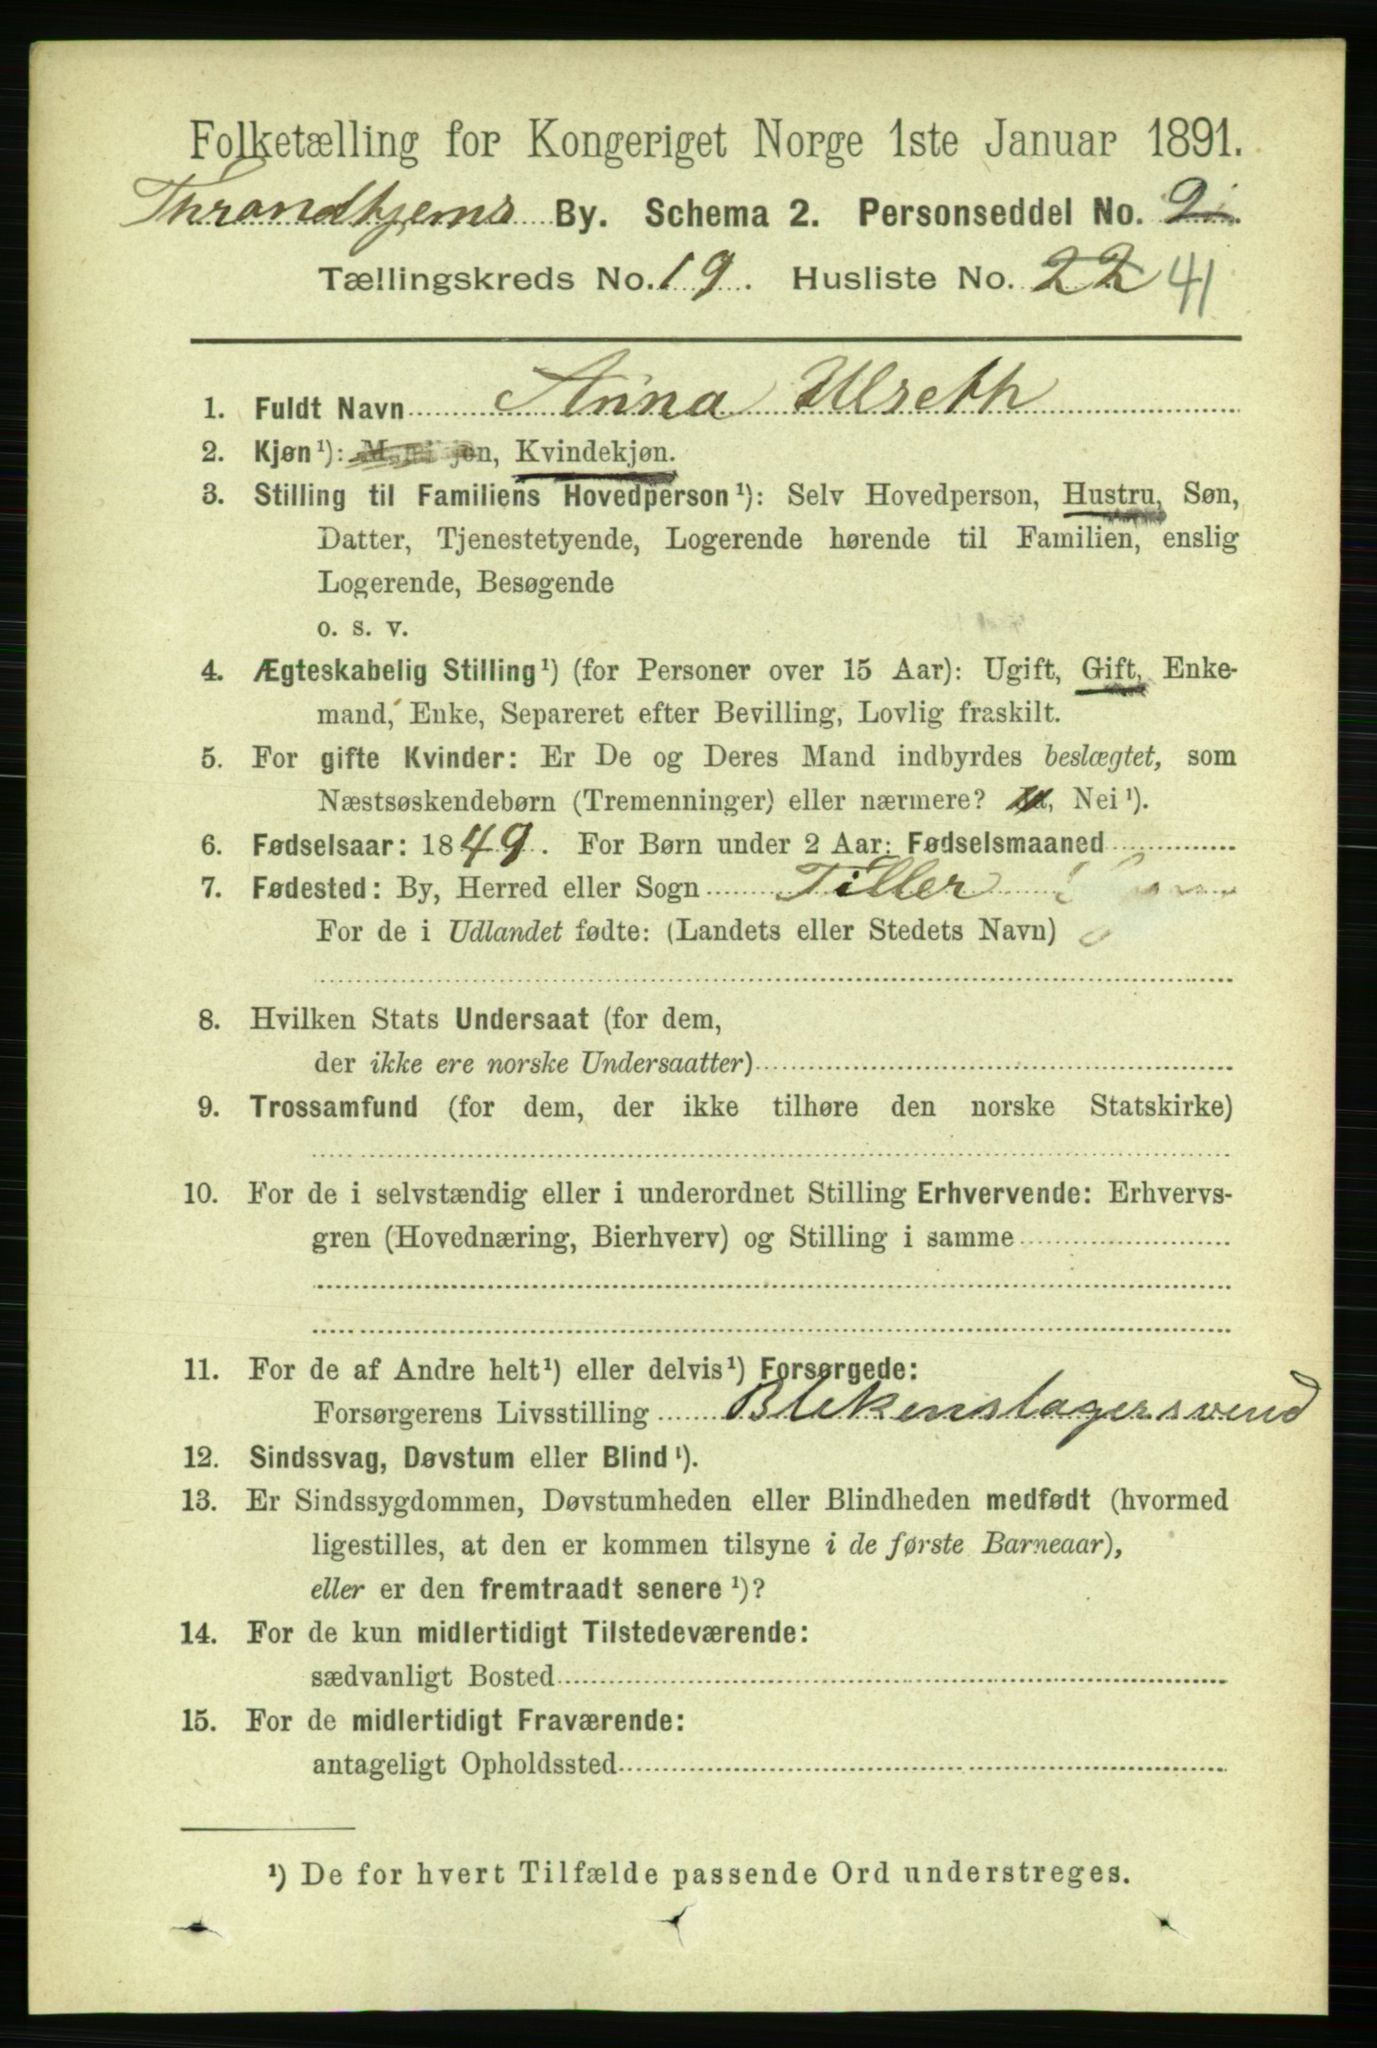 Folketælling for Kongeriget Norge 1ste Januar 1891.
Throndhjems By. Schema 2. Personseddel No. 2.
Tællingskreds No. 19. Husliste No. 22 41
1. Fuldt Navn Anna Ulseth
2. Kjøn¹): Mandkjøn, Kvindekjøn.
3. Stilling til Familiens Hovedperson¹): Selv Hovedperson, Hustru, Søn,
Datter, Tjenestetyende, Logerende hørende til Familien, enslig
Logerende, Besøgende
o. s. v.
4. Ægteskabelig Stilling¹) (for Personer over 15 Aar): Ugift, Gift, Enke-
mand, Enke, Separeret efter Bevilling, Lovlig fraskilt.
5. For gifte Kvinder: Er De og Deres Mand indbyrdes beslægtet, som
Næstsøskendebørn (Tremenninger) eller nærmere? Ja, Nei¹).
6. Fødselsaar: 1849. For Børn under 2 Aar: Fødselsmaaned
7. Fødested: By, Herred eller Sogn Tiller
For de i Udlandet fødte: (Landets eller Stedets Navn)
8. Hvilken Stats Undersaat (for dem,
der ikke ere norske Undersaatter)
9. Trossamfund (for dem, der ikke tilhøre den norske Statskirke)
10. For de i selvstændig eller i underordnet Stilling Erhvervende: Erhvervs-
gren (Hovednæring, Bierhverv) og Stilling i samme
11. For de af Andre helt¹) eller delvis¹) Forsørgede:
Forsørgerens Livsstilling Blekenslagersvend
12. Sindssvag, Døvstum eller Blind¹).
13. Er Sindssygdommen, Døvstumheden eller Blindheden medfødt (hvormed
ligestilles, at den er kommen tilsyne i de første Barneaar),
eller er den fremtraadt senere¹)?
14. For de kun midlertidigt Tilstedeværende:
sædvanligt Bosted
15. For de midlertidigt Fraværende:
antageligt Opholdssted
¹) De for hvert Tilfælde passende Ord understreges.